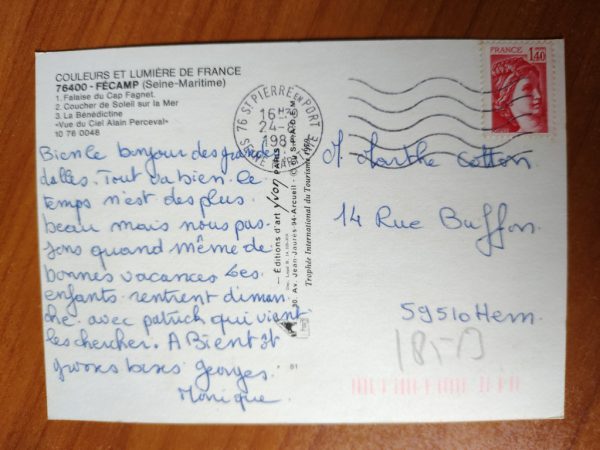 COULEURS ET LUMIÈRE DE FRANCE
76400 - FÉCAMP (Seine-Maritime)
1. Falaise du Cap Fagnet.
2. Coucher de Soleil sur la Mer
3. La Bénédictine
«Vue du Ciel Alain Perceval»
10 76 0048
Bien le bonjour des grandes
dalles. Tout va bien. le
temps n'est des plus
beau mais nous pas-
sons quand même de
bonnes vacances Les
enfants rentrent diman
che avec patrick qui vient
les chercher. A Bientôt
grosses bises Georges.
Monique
— Éditions d'art Yvon PARIS
30, Av. Jean-Jaurès-94-Arcueil
Trophée International du Tourisme
76 ST PIERRE EN PORT
SEINE MARITIME
16H
24-
198
FRANCE
1,40
Marthe Cotton
14 Rue Buffon.
59510 Hem.